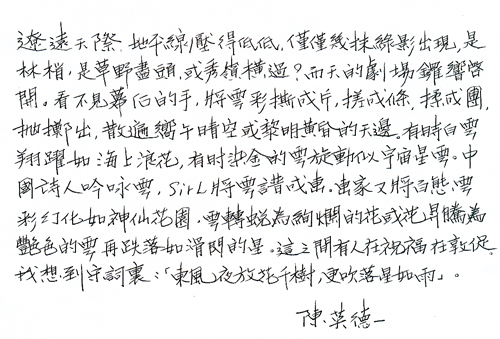 遼遠天際 地平線壓得低低，僅僅幾抹綠影出現，是
林梢，是草野盡頭，或秀嶺橫過？而天的劇場鑼響啓
開。看不見幕后的手，將雲彩撕成片，搓成條，揉成團，
拋擲出，散遍嚮午晴空或黎明黃昏的天邊。有時白雲
翔躍如海上浪花，有時染金的雲旋動似宇宙星雲。中
國詩人吟咏雲，SirL將雲譜成曲。畫家又將百態雲
彩幻化如神仙花園。雲轉蛻為絢爛的花或花昇騰為
艷色的雲再跌落如滑閃的星。這之間有人在祝福在敦促。
我想到宋詞裏：「東風夜放花千樹，更吹落星如雨」。
陳英德